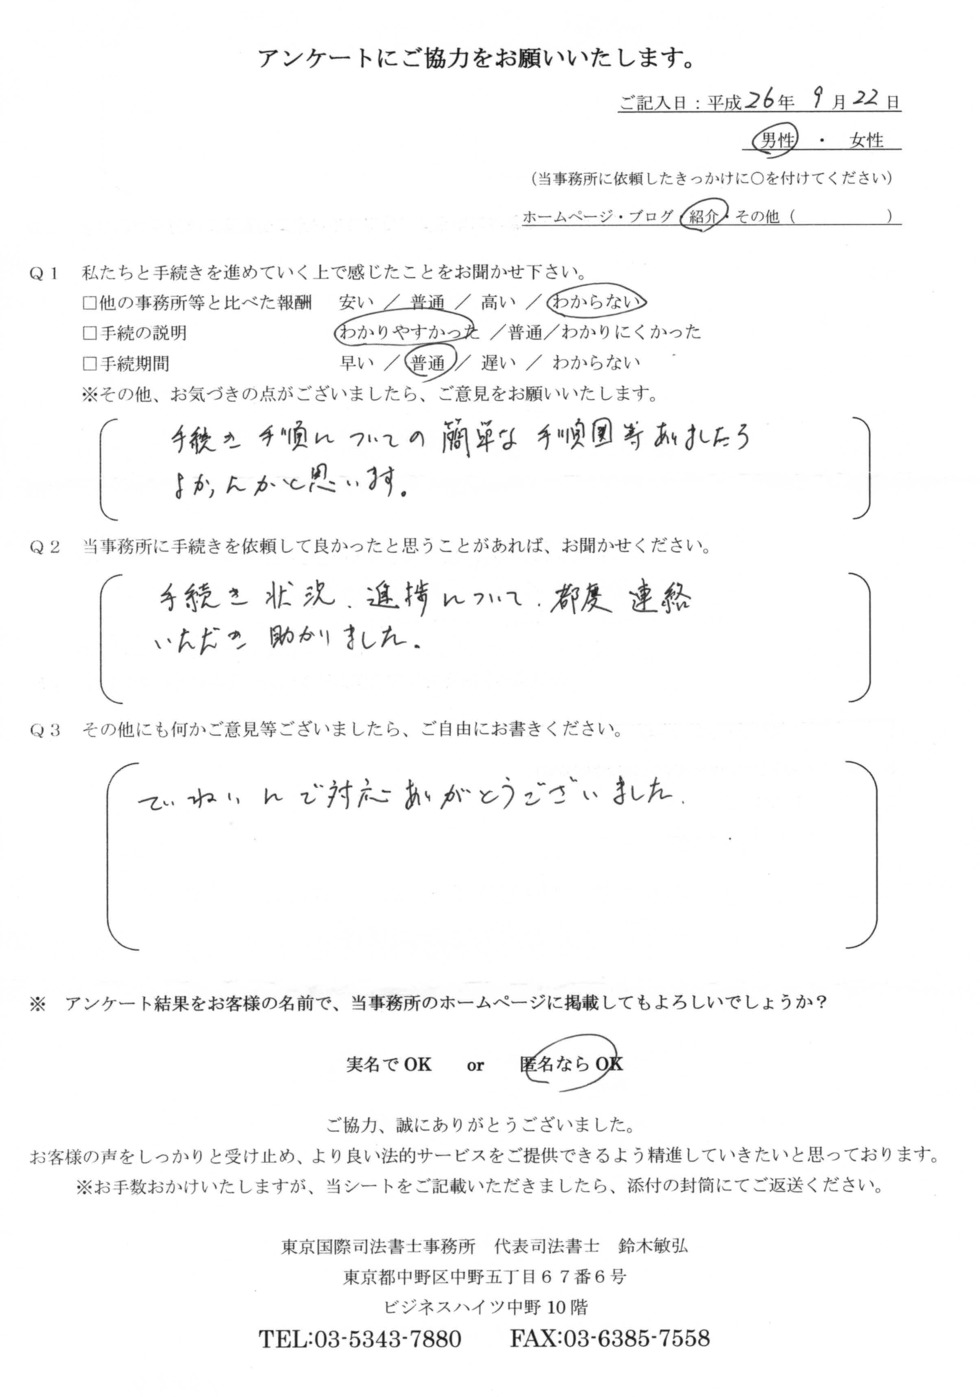 アンケートにご協力をお願いいたします。
ご記入日：平成26年 9月22日
男性 ・ 女性
（当事務所に依頼したきっかけに○を付けてください）
ホームページ・ブログ・紹介・その他（　　　　　）
Ｑ１　私たちと手続きを進めていく上で感じたことをお聞かせ下さい。
□他の事務所等と比べた報酬　安い ／ 普通 ／ 高い ／ わからない
□手続の説明　わかりやすかった ／普通／わかりにくかった
□手続期間　早い ／ 普通 ／ 遅い ／ わからない
※その他、お気づきの点がございましたら、ご意見をお願いいたします。
手続き手順についての簡単な手順図等ありましたら
よかったかと思います。
Ｑ２　当事務所に手続きを依頼して良かったと思うことがあれば、お聞かせください。
手続き状況、進捗について、都度連絡
いただき助かりました。
Ｑ３　その他にも何かご意見等ございましたら、ご自由にお書きください。
ていねいなご対応ありがとうございました。
※　アンケート結果をお客様の名前で、当事務所のホームページに掲載してもよろしいでしょうか？
実名でOK　or　匿名ならOK
ご協力、誠にありがとうございました。
お客様の声をしっかりと受け止め、より良い法的サービスをご提供できるよう精進していきたいと思っております。
※お手数おかけいたしますが、当シートをご記載いただきましたら、添付の封筒にてご返送ください。
東京国際司法書士事務所　代表司法書士　鈴木敏弘
東京都中野区中野五丁目６７番６号
ビジネスハイツ中野10階
TEL:03-5343-7880　FAX:03-6385-7558